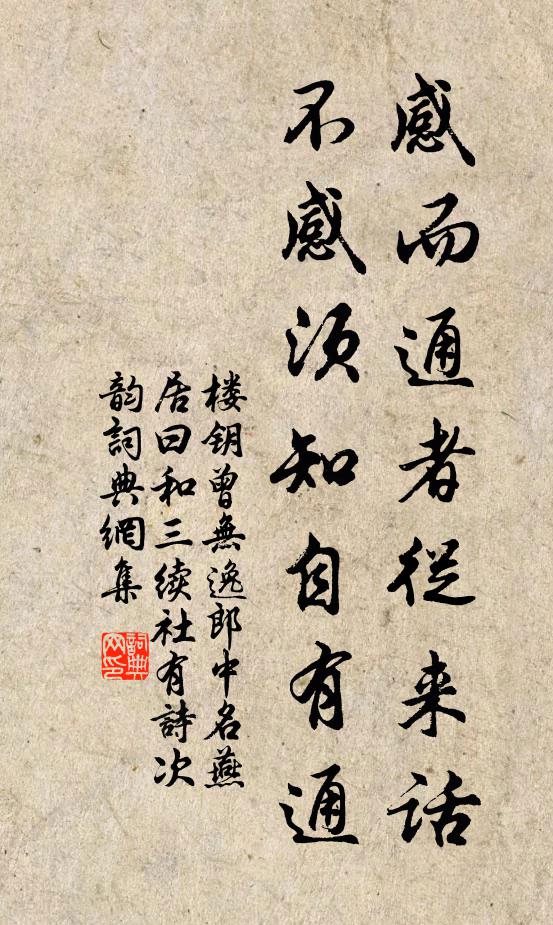 感而通者從来话
不感须知自有通
楼钥曾無逸郎中名燕
居曰和三续社有詩次
韵詞典網集
詞典网印